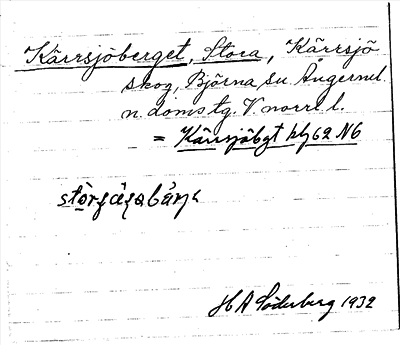 Kärrsjöberget, Stora, Kärrsjö
skog, Björna sn. Ångerml.
n. doms tg. V norrl. l.
= Kärrsjöbgt blj 62 N6
H A Söderberg 1932